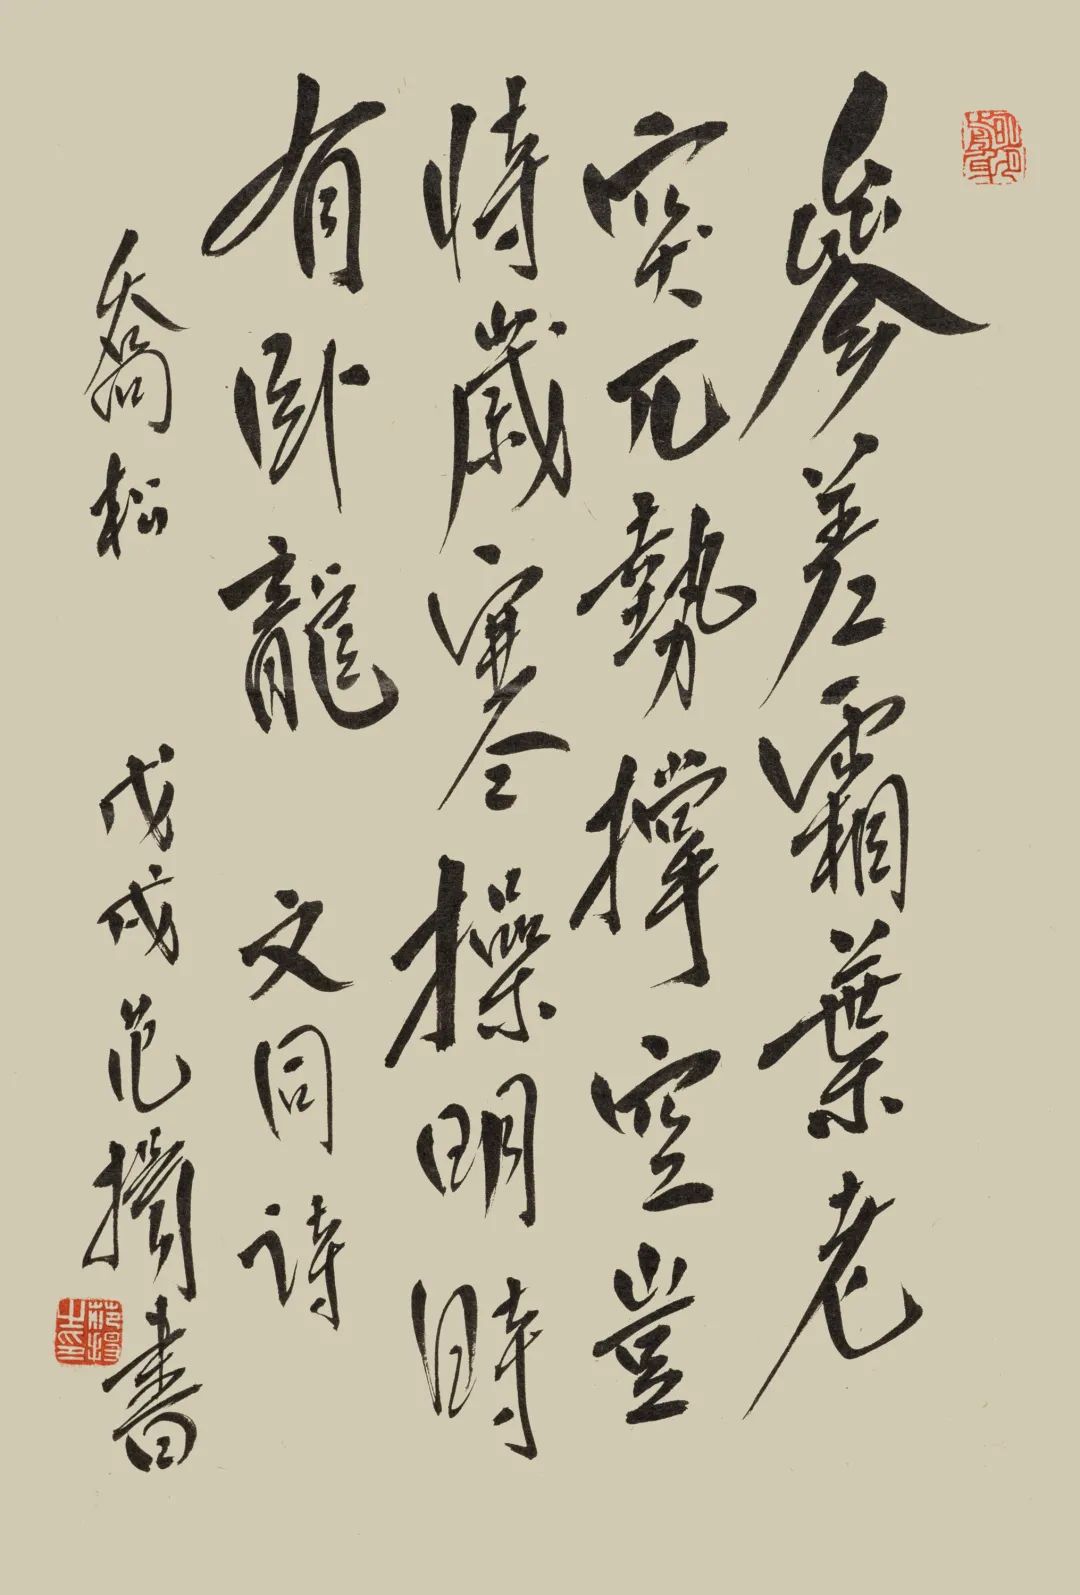 參差霜葉老
突兀勢撐空豈
恃歲寒操明時
有臥龍 文同詩
喬松 戊戌 范 書